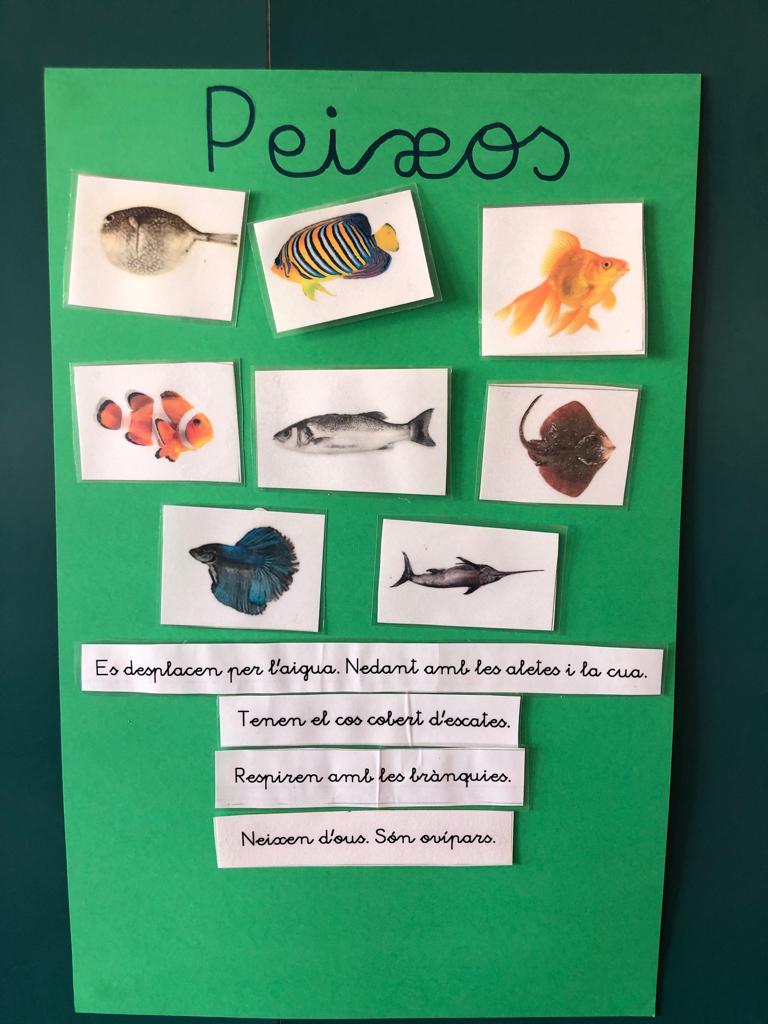 Peixos
Es desplacen per l'aigua. Nedant amb les aletes i la cua.
Tenen el cos cobert d'escates.
Respiren amb les brànquies.
Neixen d'ous. Són ovípars.